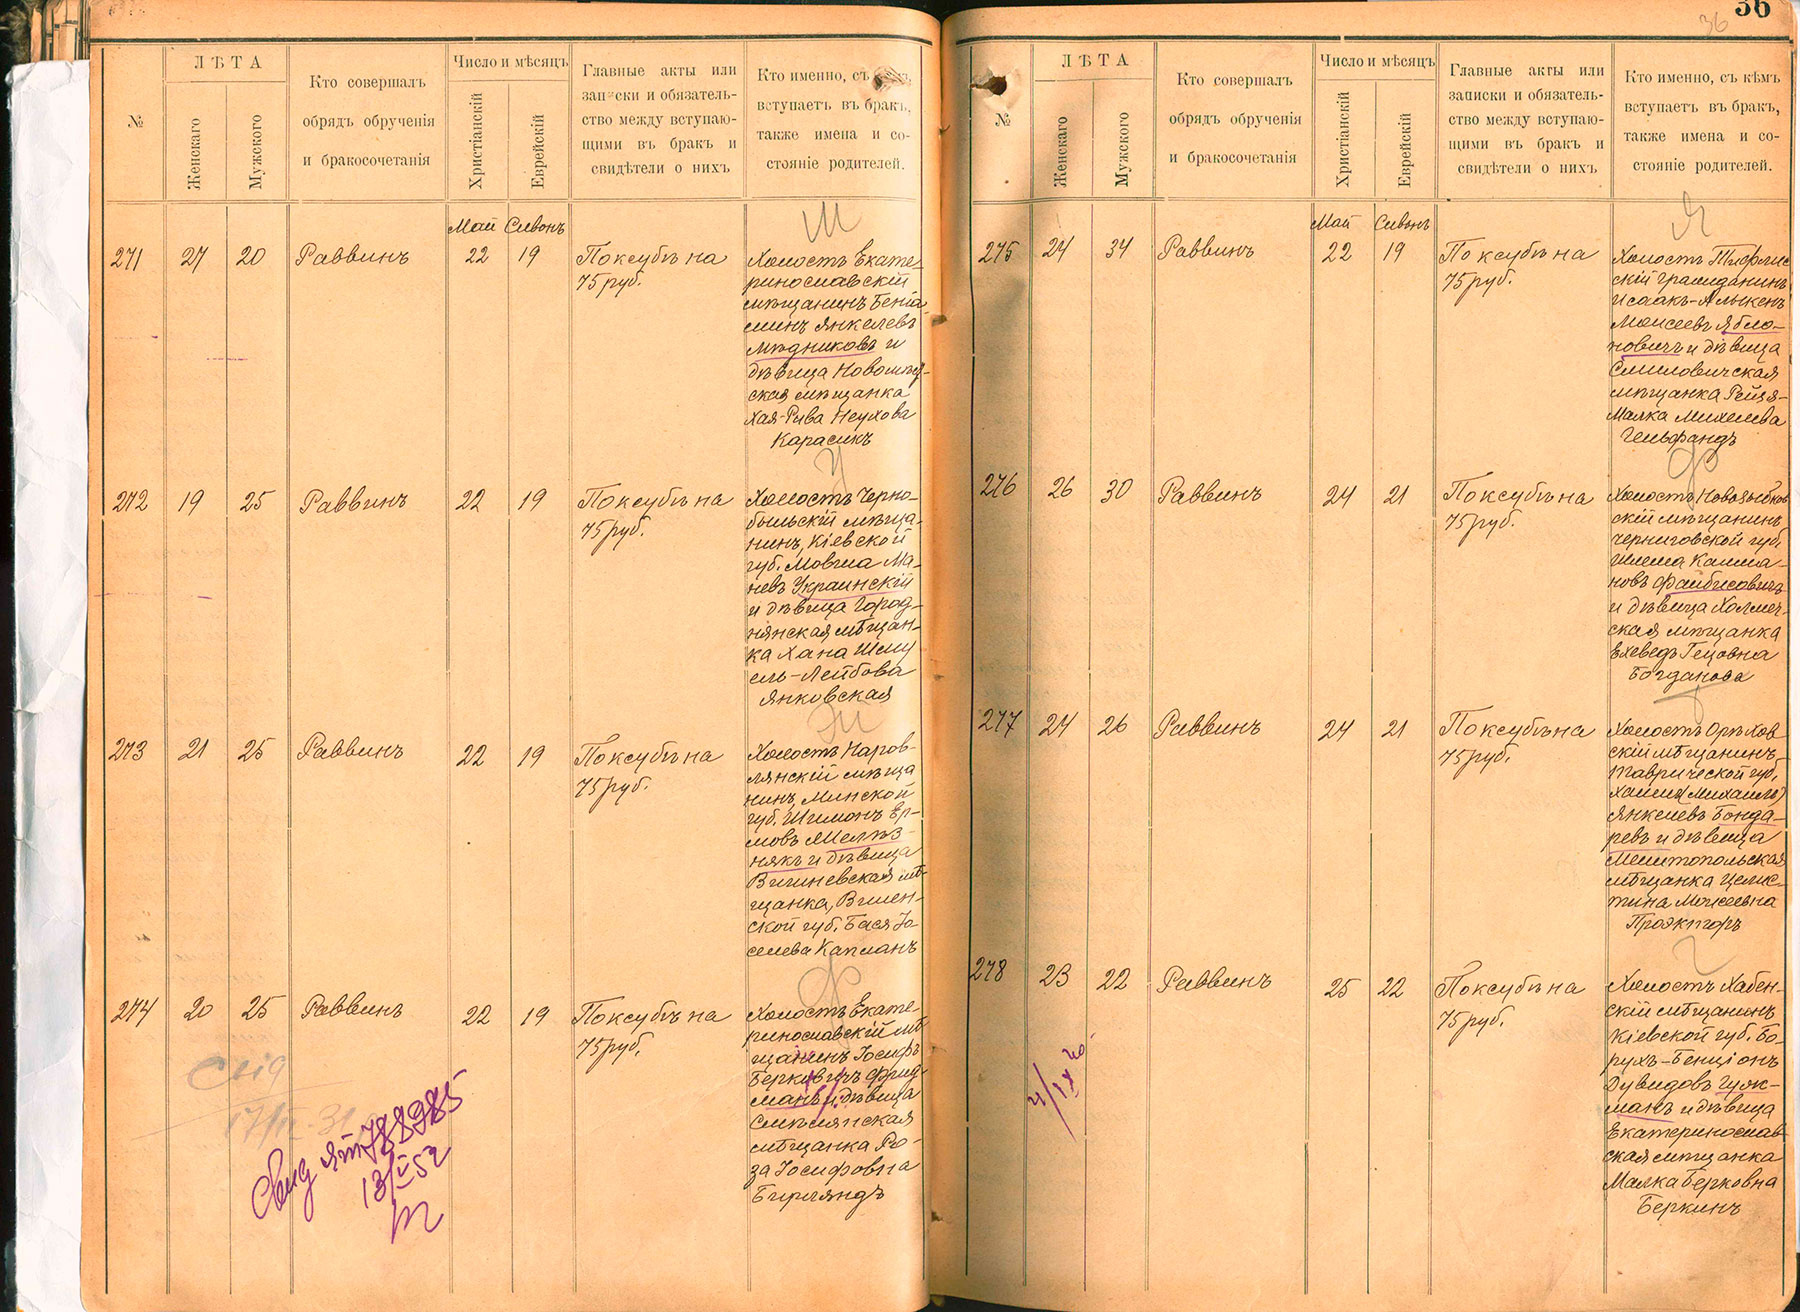 №
ЛѢТА
Женскаго
Мужского
Кто совершалъ
обрядъ обрученія
и бракосочетанія
Число и мѣсяцъ
Христіанскій
Еврейскій
Главные акты или
записки и обязатель-
ство между вступаю-
щими въ бракъ и
свидѣтели о нихъ
Кто именно, съ
вступаетъ въ бракъ,
также имена и со-
стояніе родителей.
Май Сивонъ
271 27 20 Раввинъ 22 19
Поксубъ на
75 руб.
Холостъ Екате-
ринославскій
мѣщанинъ Беніа-
минъ Янкелевъ
Мѣдниковъ и
дѣвица Новомѣд-
ская мѣщанка
Хая-Рива Неухова
Карасикъ
У
272 19 25 Раввинъ 22 19
Поксубъ на
75 руб.
Холостъ Черно-
быльскій мѣща-
нинъ, Кіевской
губ. Мовша Ма-
невъ Украинскій
и дѣвица Город-
нянская мѣщан-
ка Хана Шму
ель-Лейбова
Янковская
Ж
273 21 25 Раввинъ 22 19
Поксубъ на
75 руб.
Холостъ Наров-
лянскій мѣща
нинъ, Минской
губ. Шимонъ Ер-
мовъ Желѣз-
някъ и дѣвица
Вишневская мѣ-
щанка, Вилен-
ской губ. Бася Іо-
селева Капланъ
Ф
274 20 25 Раввинъ 22 19
Поксубъ на
75 руб.
Холостъ Екате-
ринославскій мѣ-
щанинъ Іосифъ
Берковичъ Фрид-
манъ и дѣвица
Смѣлянская
мѣщанка Ро-
за Іосифовна
Бирляндъ
Свид ЯТ 788985
13/V 52
36
36
№
ЛѢТА
Женскаго
Мужского
Кто совершалъ
обрядъ обрученія
и бракосочетанія
Число и мѣсяцъ
Христіанскій
Еврейскій
Главные акты или
записки и обязатель-
ство между вступаю-
щими въ бракъ и
свидѣтели о нихъ
Кто именно, съ кѣмъ
вступаетъ въ бракъ,
также имена и со-
стояніе родителей.
Я
Май Сивонъ
275 24 34 Раввинъ 22 19
Поксубъ на
75 руб.
Холостъ Тифлис
скій гражданинъ
Исаакъ-
Моисеевъ Ябло-
новичъ и дѣвица
Смиловичская
мѣщанка Рейзя-
Малка Михелева
Гельфандъ
Ф
276 26 30 Раввинъ 24 21
Поксубъ на
75 руб.
Холостъ Новозыбков
скій мѣщанинъ,
Черниговской губ.
Шлема Калма-
новъ Файбисовичъ
и дѣвица Холмеч-
ская мѣщанка
Ехеведъ Гецовна
Богданова
277 24 26 Раввинъ 24 21
Поксубъ на
75 руб.
Холостъ Орѣхов
скій мѣщанинъ
Таврической губ.
Хаимъ (Михаилъ)
Янкелевъ Бонда-
ревъ и дѣвица
Мелитопольская
мѣщанка Целис-
тина Моисеевна
278 23 22 Раввинъ 25 22
Поксубъ на
75 руб.
Холостъ Хабен-
скій мѣщанинъ
Кіевской губ. Бо-
рухъ-Бенціонъ
Дувидовъ Гуж-
манъ и дѣвица
Екатеринослав-
ская мѣщанка
Малка Берковна
Беркинъ